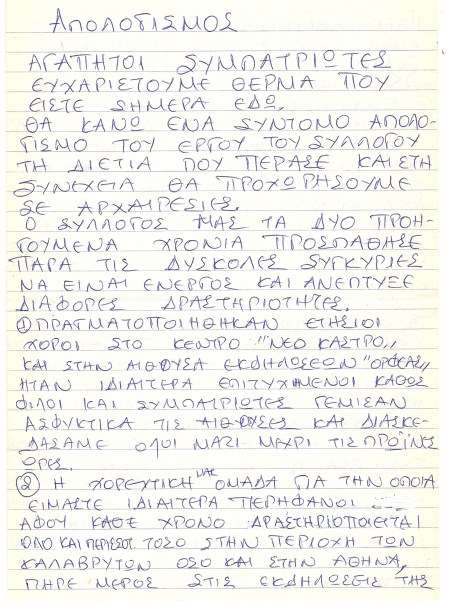 ΑΠΟΛΟΓΙΣΜΟΣ
ΑΓΑΠΗΤΟΙ ΣΥΜΠΑΤΡΙΩΤΕΣ
ΕΥΧΑΡΙΣΤΟΥΜΕ ΘΕΡΜΑ ΠΟΥ
ΕΙΣΤΕ ΣΗΜΕΡΑ ΕΔΩ.
ΘΑ ΚΑΝΩ ΕΝΑ ΣΥΝΤΟΜΟ ΑΠΟΛΟ-
ΓΙΣΜΟ ΤΟΥ ΕΡΓΟΥ ΤΟΥ ΣΥΛΛΟΓΟΥ
ΤΗ ΔΙΕΤΙΑ ΠΟΥ ΠΕΡΑΣΕ ΚΑΙ ΣΤΗ
ΣΥΝΕΧΕΙΑ ΘΑ ΠΡΟΧΩΡΗΣΟΥΜΕ
ΣΕ ΑΡΧΑΙΡΕΣΙΕΣ.
Ο ΣΥΛΛΟΓΟΣ ΜΑΣ ΤΑ ΔΥΟ ΠΡΟΗ-
ΓΟΥΜΕΝΑ ΧΡΟΝΙΑ ΠΡΟΣΠΑΘΗΣΕ
ΠΑΡΑ ΤΙΣ ΔΥΣΚΟΛΕΣ ΣΥΓΚΥΡΙΕΣ
ΝΑ ΕΙΝΑΙ ΕΝΕΡΓΟΣ ΚΑΙ ΑΝΕΠΤΥΞΕ
ΔΙΑΦΟΡΕΣ ΔΡΑΣΤΗΡΙΟΤΗΤΕΣ.
① ΠΡΑΓΜΑΤΟΠΟΙΗΘΗΚΑΝ ΕΤΗΣΙΟΙ
ΧΟΡΟΙ ΣΤΟ ΚΕΝΤΡΟ "ΝΕΟ ΚΑΣΤΡΟ,,
ΚΑΙ ΣΤΗΝ ΑΙΘΟΥΣΑ ΕΚΔΗΛΩΣΕΩΝ "ΟΡΦΕΑΣ,,
ΗΤΑΝ ΙΔΙΑΙΤΕΡΑ ΕΠΙΤΥΧΗΜΕΝΟΙ ΚΑΘΩΣ
ΦΙΛΟΙ ΚΑΙ ΣΥΜΠΑΤΡΙΩΤΕΣ ΓΕΜΙΣΑΝ
ΑΣΦΥΚΤΙΚΑ ΤΙΣ ΑΙΘΟΥΣΕΣ ΚΑΙ ΔΙΑΣΚΕ-
ΔΑΣΑΜΕ ΟΛΟΙ ΜΑΖΙ ΜΑΧΡΙ ΤΙΣ ΠΡΩΪΝΕΣ
ΩΡΕΣ.
② Η ΧΟΡΕΥΤΙΚΗ ΜΑΣ ΟΜΑΔΑ ΓΙΑ ΤΗΝ ΟΠΟΙΑ
ΕΙΜΑΣΤΕ ΙΔΙΑΙΤΕΡΑ ΠΕΡΗΦΑΝΟΙ
ΑΦΟΥ ΚΑΘΕ ΧΡΟΝΟ ΔΡΑΣΤΗΡΙΟΠΟΙΕΙΤΑΙ
ΟΛΟ ΚΑΙ ΠΕΡΙΣΣΟΤ. ΤΟΣΟ ΣΤΗΝ ΠΕΡΙΟΧΗ ΤΩΝ
ΚΑΛΑΒΡΥΤΩΝ ΟΣΟ ΚΑΙ ΣΤΗΝ ΑΘΗΝΑ,
ΠΗΡΕ ΜΕΡΟΣ ΣΤΙΣ ΕΚΔΗΛΩΣΕΙΣ ΤΗΣ